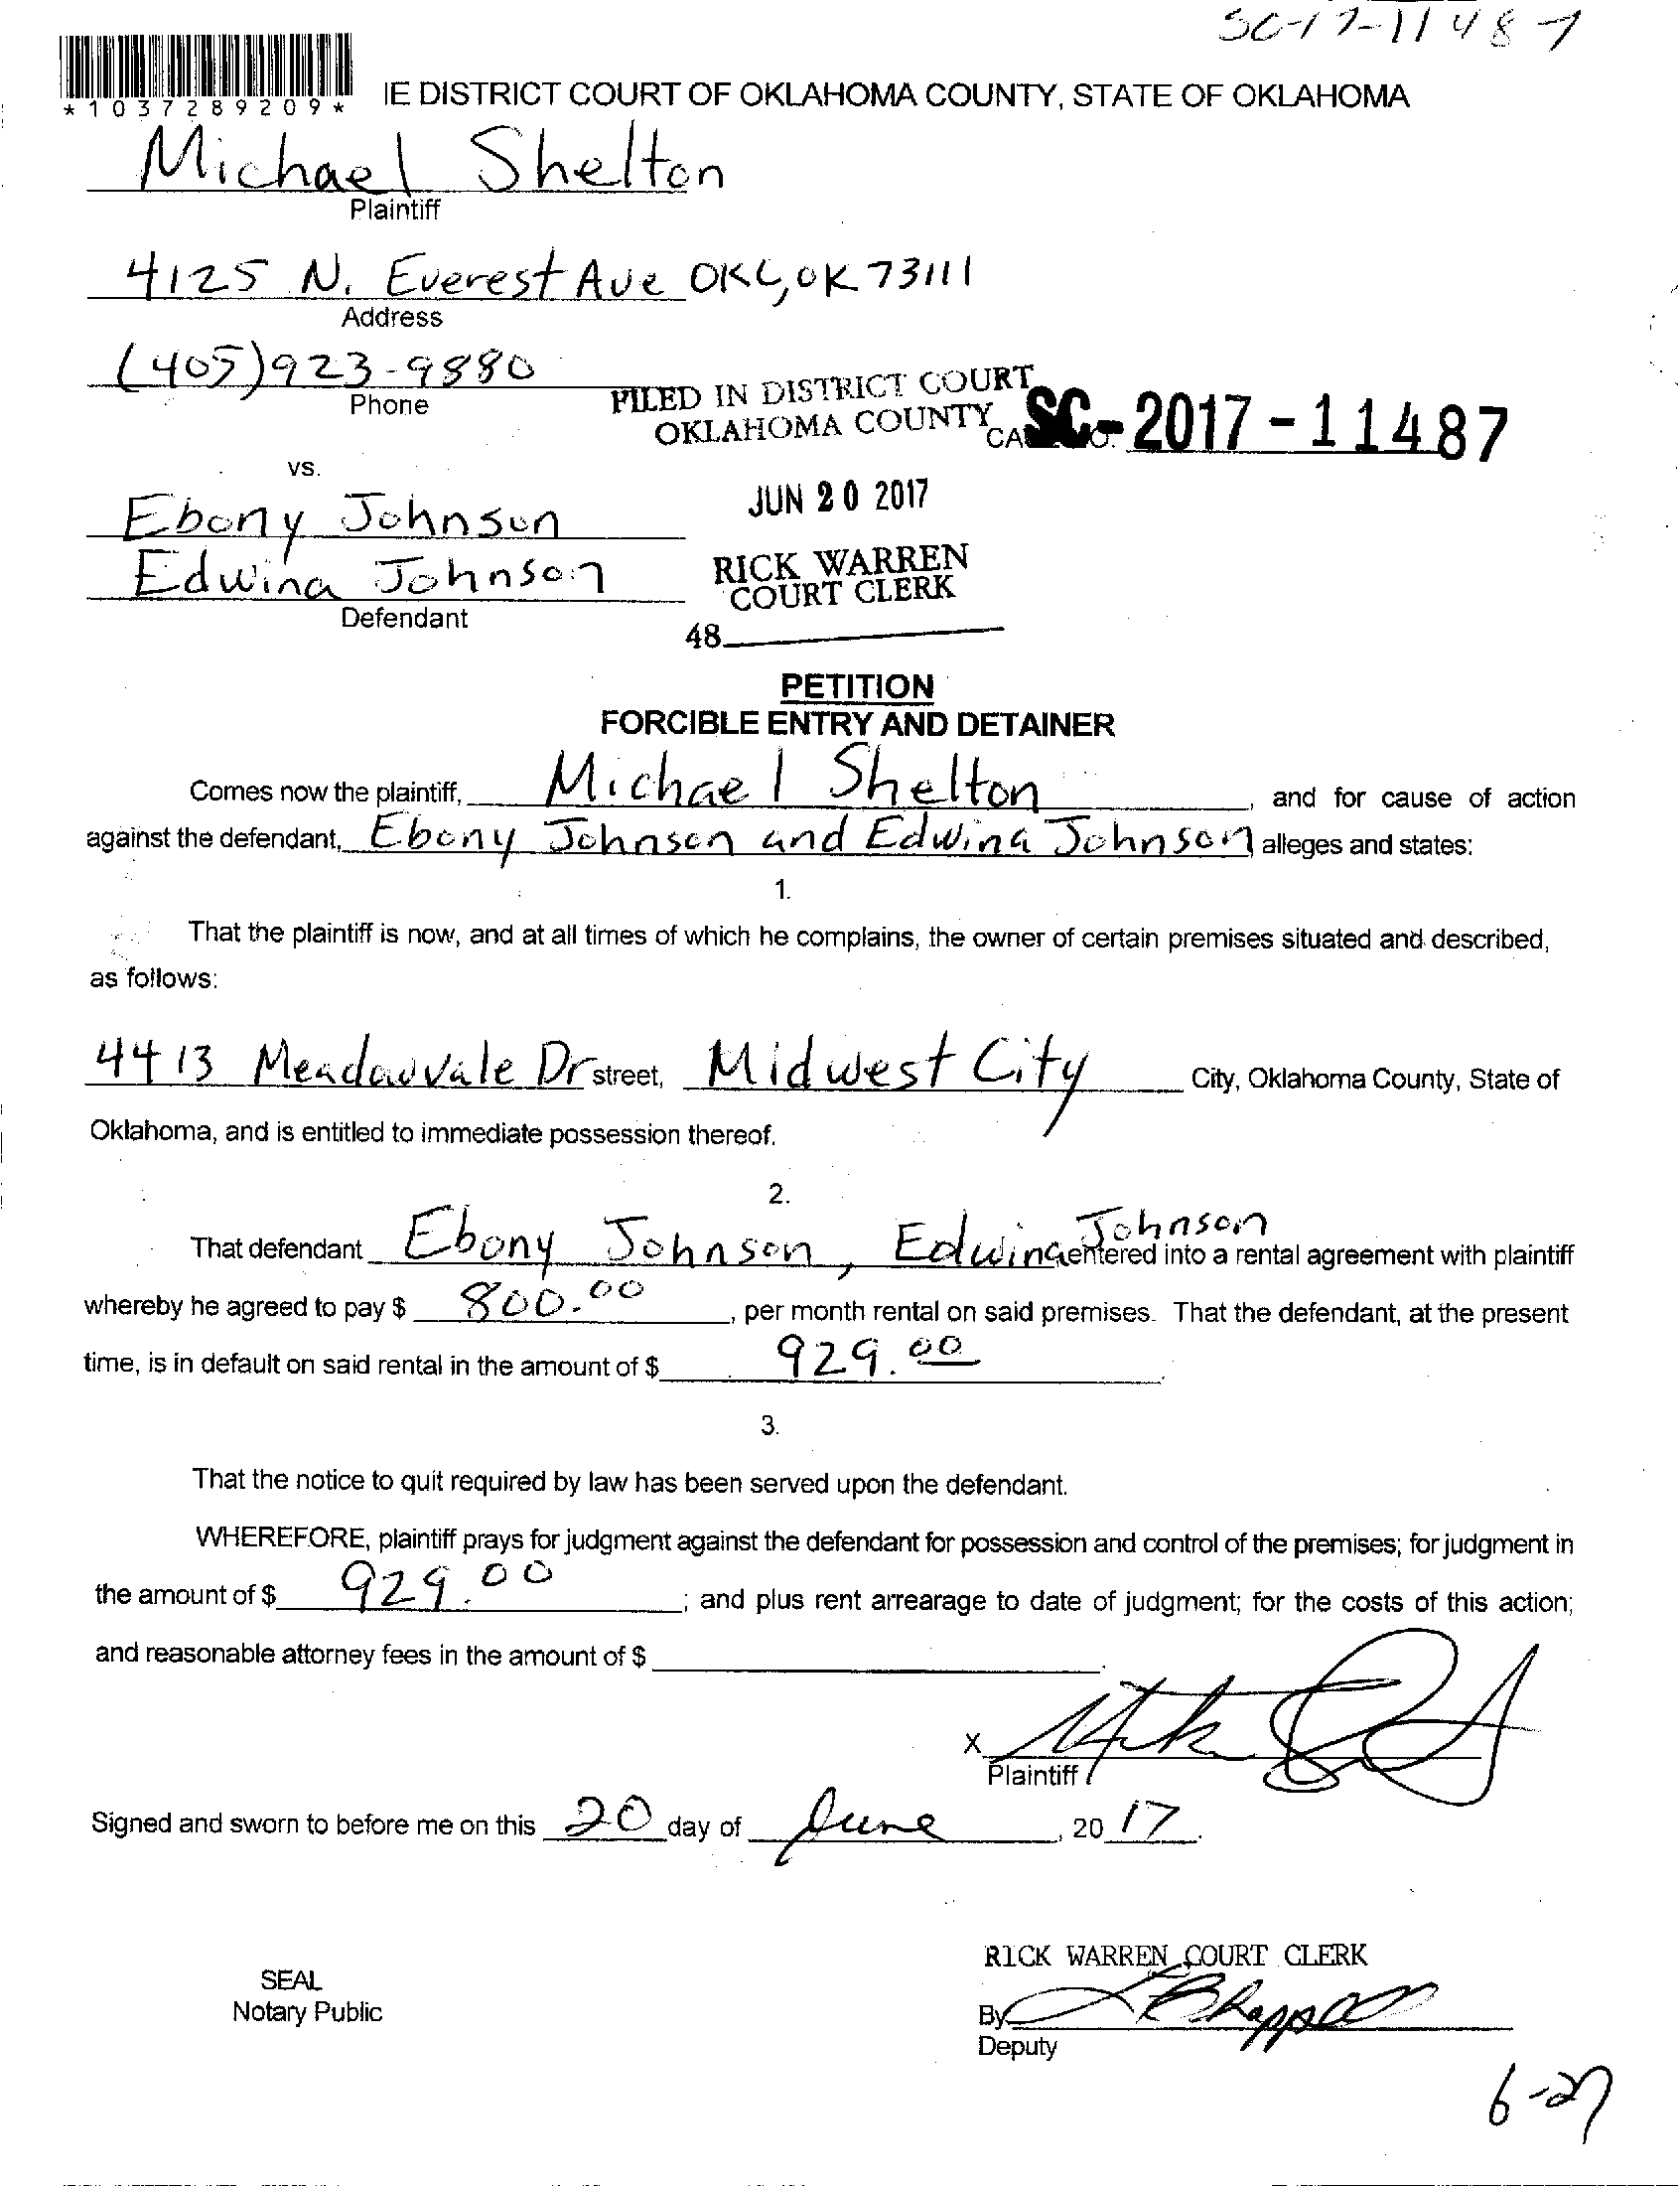 SC-17-11487
*1037289209*
IE DISTRICT COURT OF OKLAHOMA COUNTY, STATE OF OKLAHOMA
Michael Shelton
Plaintiff
4125 N. Everest Ave OKC, OK 73111
Address
(405)923-9880
Phone
FILED IN DISTRICT COURT
OKLAHOMA COUNTY
CA SC-2017-11487
vs.
JUN 20 2017
Ebony Johnson
Edwina Johnson
RICK WARREN
COURT CLERK
Defendant
48
PETITION
FORCIBLE ENTRY AND DETAINER
Comes now the plaintiff, Michael Shelton, and for cause of action
against the defendant, Ebony Johnson and Edwina Johnson alleges and states:
1.
That the plaintiff is now, and at all times of which he complains, the owner of certain premises situated and described,
as follows:
4413 Meadowvale Dr street, Midwest City City, Oklahoma County, State of
Oklahoma, and is entitled to immediate possession thereof.
2.
That defendant Ebony Johnson, Edwina Johnson entered into a rental agreement with plaintiff
whereby he agreed to pay $ 800.00, per month rental on said premises. That the defendant, at the present
time, is in default on said rental in the amount of $ 929.00.
3.
That the notice to quit required by law has been served upon the defendant.
WHEREFORE, plaintiff prays for judgment against the defendant for possession and control of the premises; for judgment in
the amount of $ 929.00; and plus rent arrearage to date of judgment; for the costs of this action;
and reasonable attorney fees in the amount of $
X
Plaintiff
Signed and sworn to before me on this 20 day of June, 20 17.
RICK WARREN COURT CLERK
SEAL
Notary Public
By
Deputy
6-27